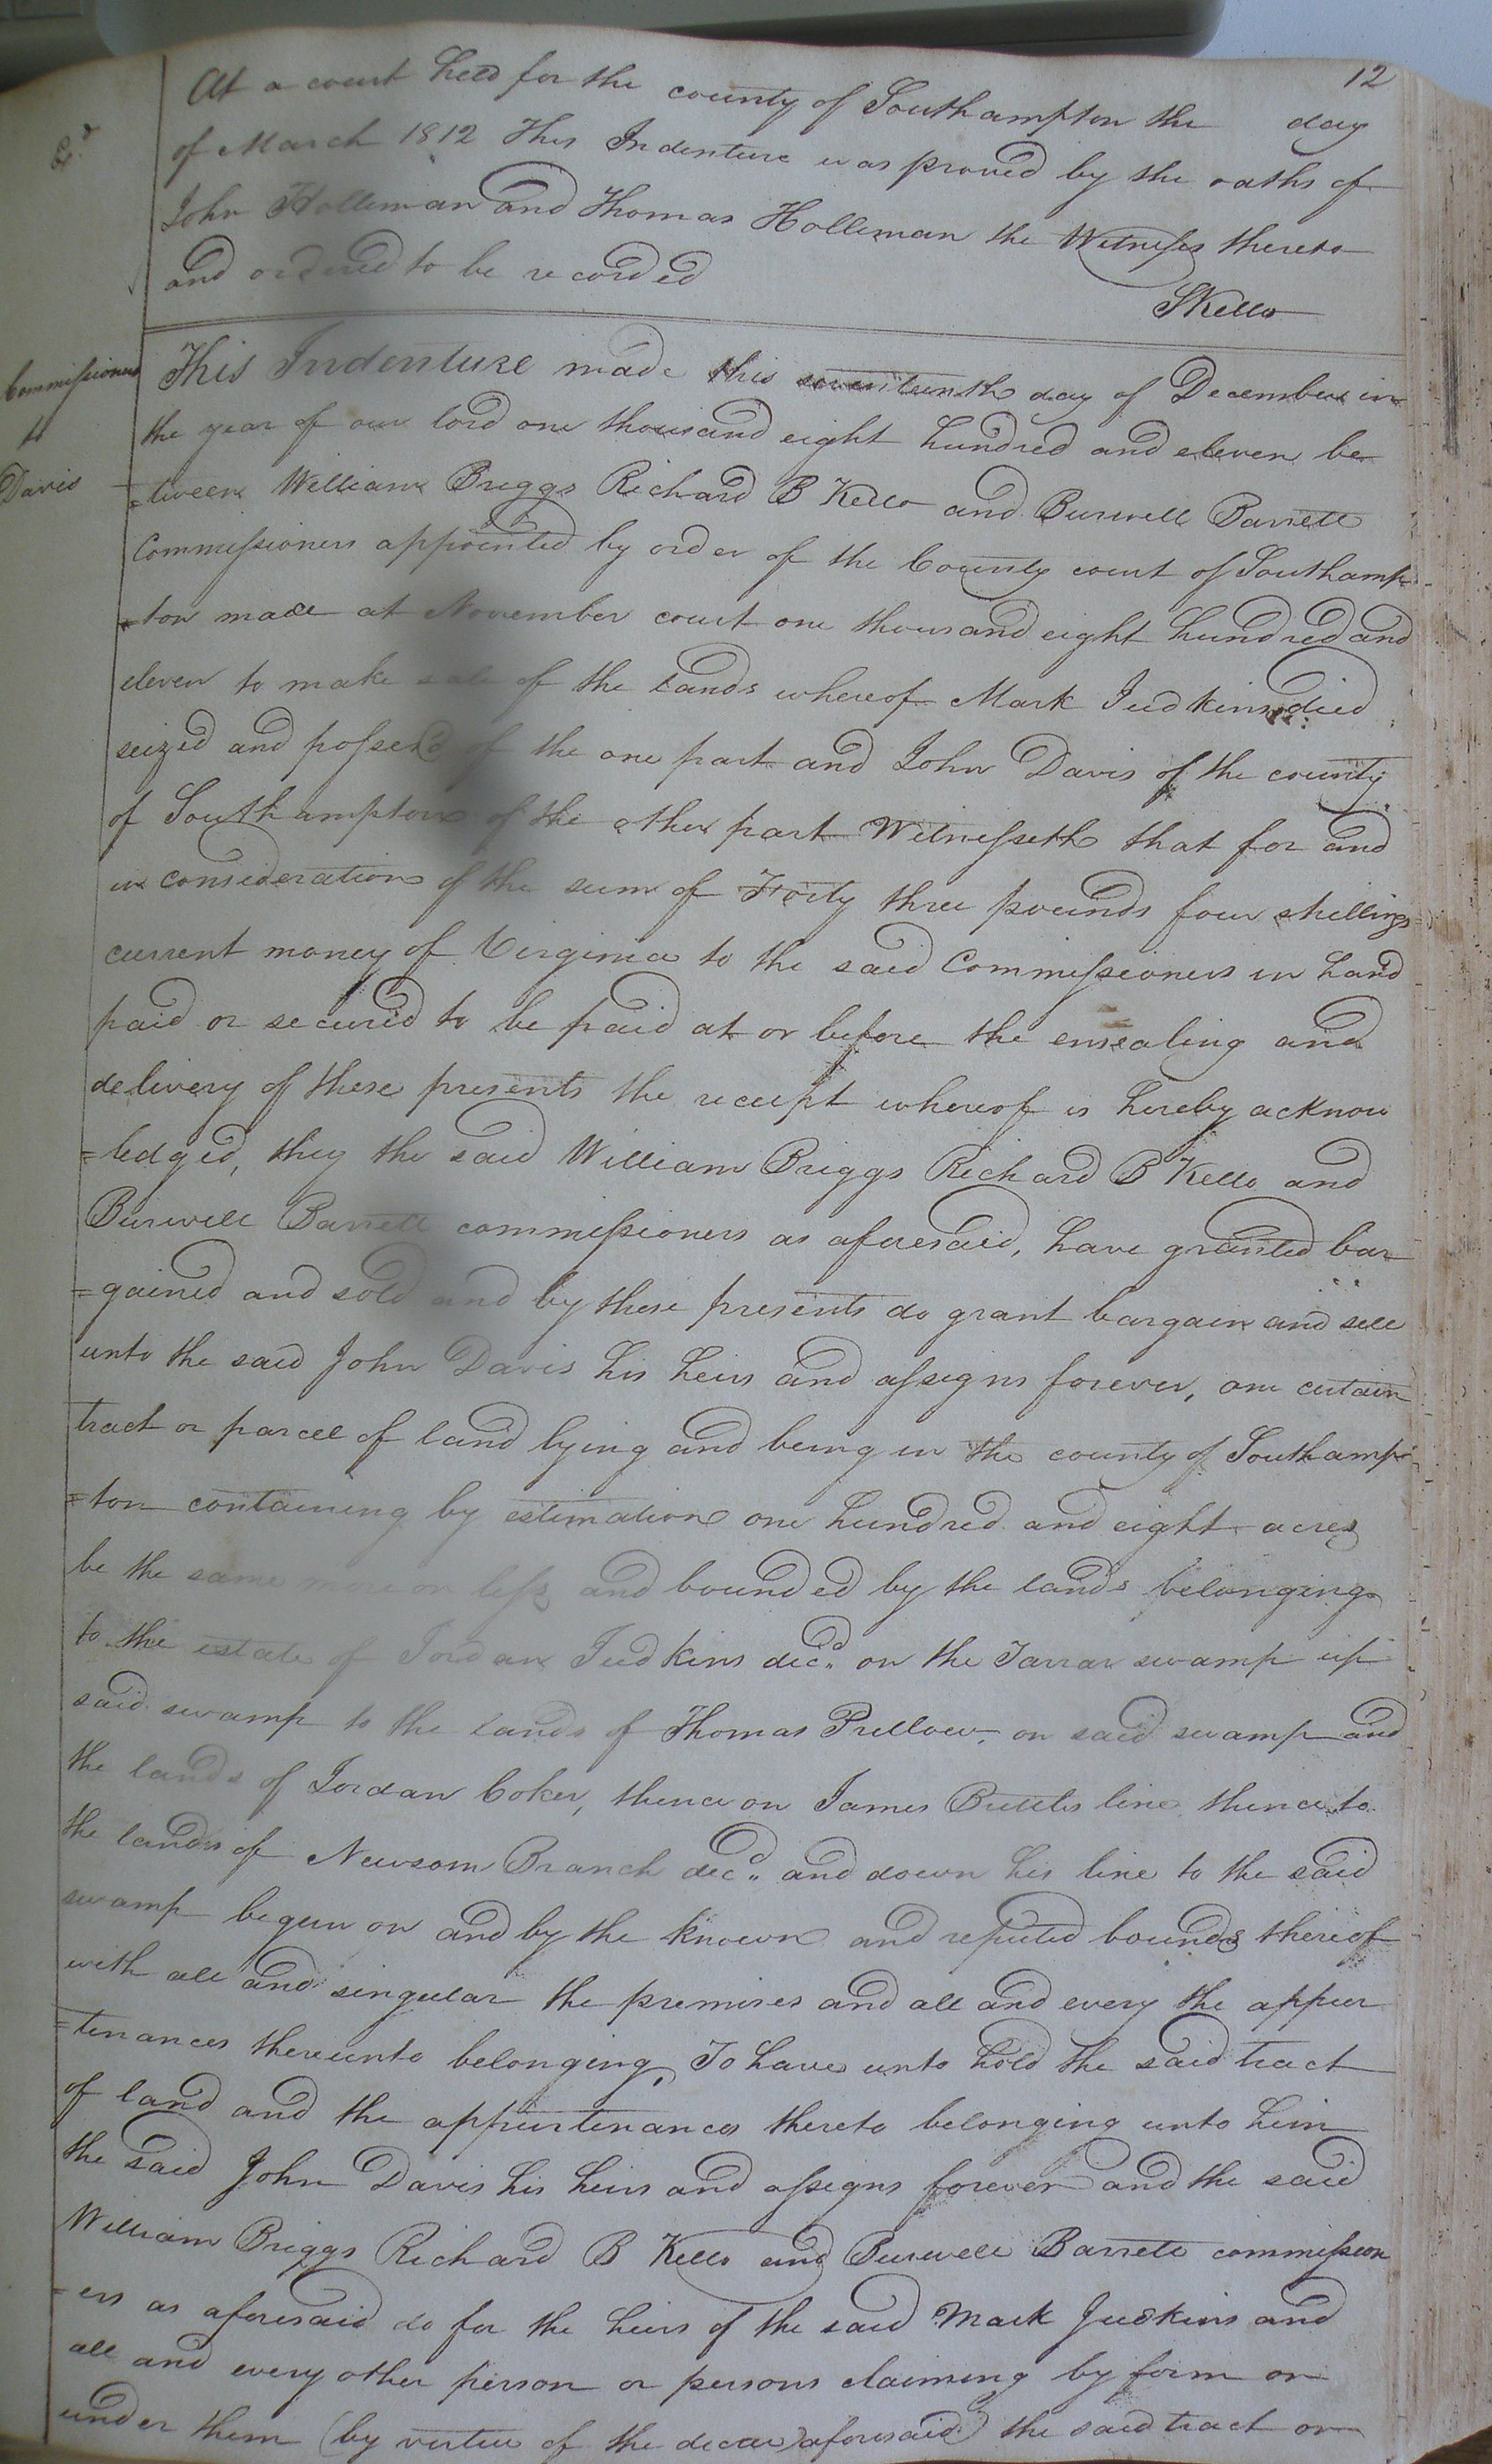 12
At a court held for the county of Southampton the day
of March 1812 This Indenture was proved by the oaths of
John Holleman and Thomas Holleman the Witnesses thereto
and ordered to be recorded
SKello
Commissioners
to
Davis
This Indenture made this seventeenth day of December in
the year of our lord one thousand eight hundred and eleven be
=tween William Briggs Richard B Kello and Burwell Barrett
Commissioners appointed by order of the County court of Southamp
=ton made at November court one thousand eight hundred and
eleven to make sale of the lands whereof Mark Judkins died
seized and possess'd of the one part and John Davis of the county
of Southampton of the other part Witnesseth that for and
in consideration of the sum of Forty three pounds four shillings
current money of Virginia to the said Commissioners in hand
paid or secured to be paid at or before the ensealing and
delivery of these presents the receipt whereof is hereby acknow
=ledged, they the said William Briggs Richard B Kello and
Burwell Barrett commissioners as aforesaid, have granted bar
=gained and sold and by these presents do grant bargain and sell
unto the said John Davis his heirs and assigns forever, one certain
tract or parcel of land lying and being in the county of Southamp
=ton containing by estimation one hundred and eight acres
be the same more or less and bounded by the lands belonging
to the estate of Jordan Judkins decd. on the Tarrar swamp up
said swamp to the lands of Thomas Prellow, on said swamp and
the lands of Jordan Coker, thence on James Buttss line thence to
the lands of Newsom Branch decd. and down his line to the said
swamp begun on and by the known and reputed bounds thereof
with all and singular the premises and all and every the appur
=tenances thereunto belonging, To have unto hold the said tract
of land and the appurtenances thereto belonging unto him
the said John Davis his heirs and assigns forever and the said
William Briggs Richard B Kello and Burwell Barrett commission
=ers as aforesaid do for the heirs of the said Mark Judkins and
all and every other person or persons claiming by form or
under them (by virtue of the decree aforesaid) the said tract or